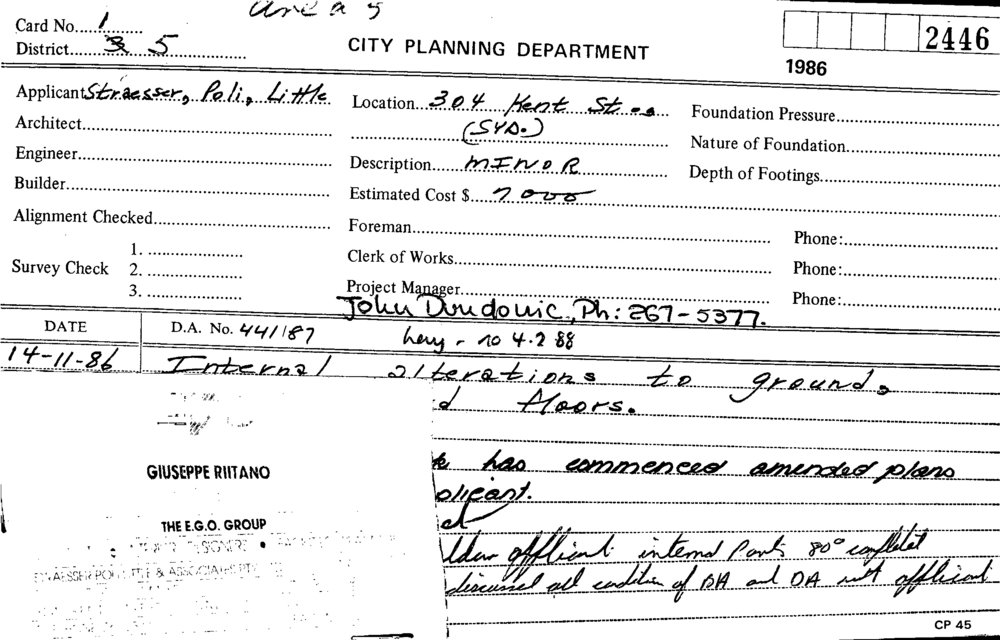 area 5
Card No. 1
District 3 5
CITY PLANNING DEPARTMENT
2446
1986
Applicant Straesser, Poli, Little
Location 304 Kent St
(SYD.)
Foundation Pressure
Architect
Nature of Foundation
Engineer
Description MINOR
Depth of Footings
Builder
Estimated Cost $ 7000
Alignment Checked
Foreman
Phone:
Survey Check
1.
2.
3.
Clerk of Works
Phone:
Project Manager
Phone:
John Ph: 267-5377.
DATE
D.A. No. 441/87
levy - no 4.2 88
14-11-86
Internal alterations to ground,
d floors.
GIUSEPPE RIITANO
THE E.G.O. GROUP
k has commenced amended plans
plicant.
ed
applicant internal Part 80° completed
discussed all condition of BA and DA with applicant
CP 45